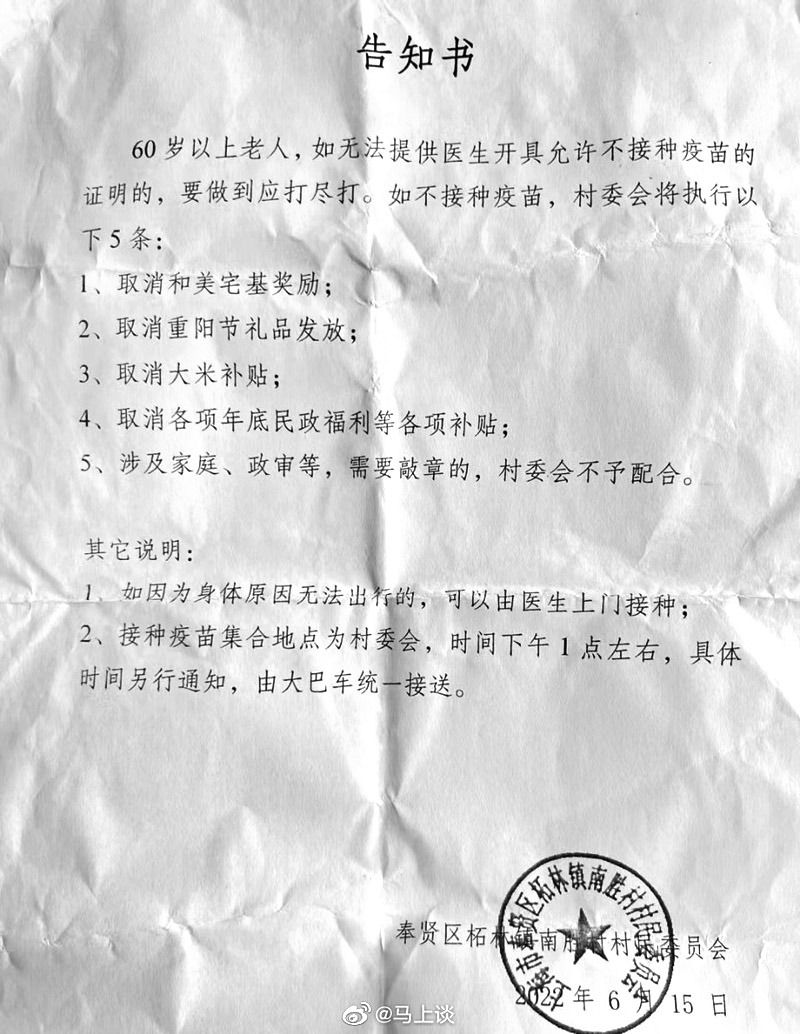 告知书
60岁以上老人，如无法提供医生开具允许不接种疫苗的
证明的，要做到应打尽打。如不接种疫苗，村委会将执行以
下5条：
1、取消和美宅基奖励；
2、取消重阳节礼品发放；
3、取消大米补贴；
4、取消各项年底民政福利等各项补贴；
5、涉及家庭、政审等，需要敲章的，村委会不予配合。
其它说明：
1、如因为身体原因无法出行的，可以由医生上门接种；
2、接种疫苗集合地点为村委会，时间下午1点左右，具体
时间另行通知，由大巴车统一接送。
上海市奉贤区柘林镇南胜村村民委员会
奉贤区柘林镇南胜村村民委员会
2022年6月15日
@马上谈